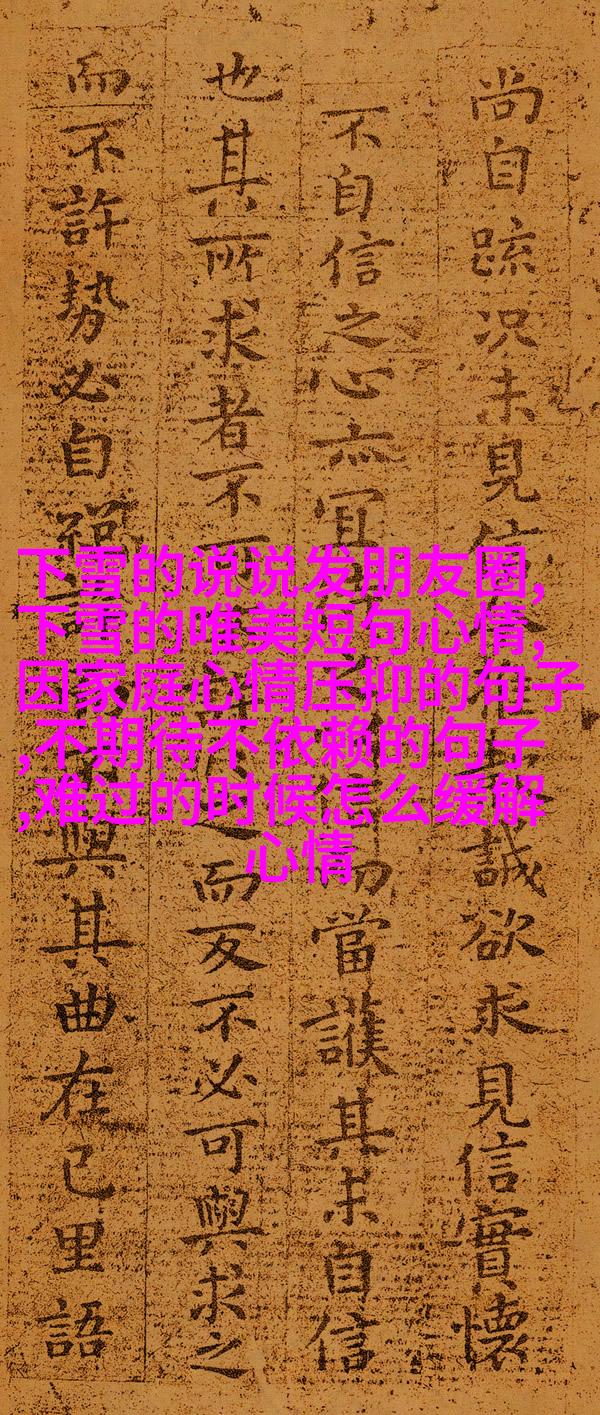 尚自疏況未見信誠欲求見信實懷
不自信之心亦宜當護其未自信
也其所求者不而反不必可與求之
而不許勢必自與其曲在已里語
下雪的说说发朋友圈,
下雪的唯美短句心情,
因家庭心情压抑的句子
,不期待不依赖的句子
,难过的时候怎么缓解
心情